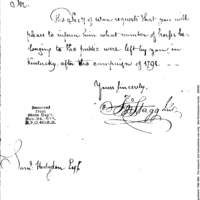 Sir.
The Secy of War requests that you will
please to inform him what number of horses be-
longing to the public were left by you in
Kentucky, after the campaigns of 1791.
Yours sincerely,
Jno Stagg Junr
Received
from
State Dep't.
Saml Hodgdon Esqr